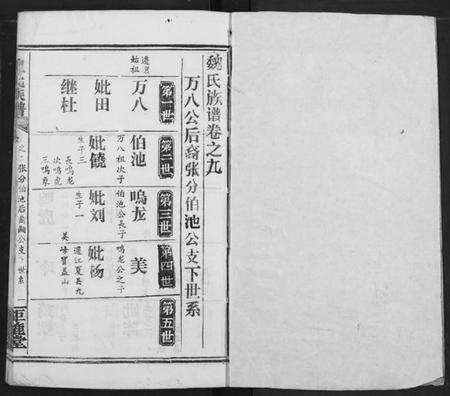 魏氏族谱卷之九
万八公后裔张分伯池公支下世系
第一世
第二世
第三世
第四世
第五世
遷吕始祖
万八
妣田
继杜
伯池
万八祖次子
妣饒
生子三
長鳴龙
次鳴虎
三鳴象
鳴龙
伯池公長子
妣刘
生子一
美
美
鳴龙公之子
妣杨
遷江夏县九
峰寶盖山
族譜
卷之二张分伯池后裔翩公支下世系
一
巨鹿堂